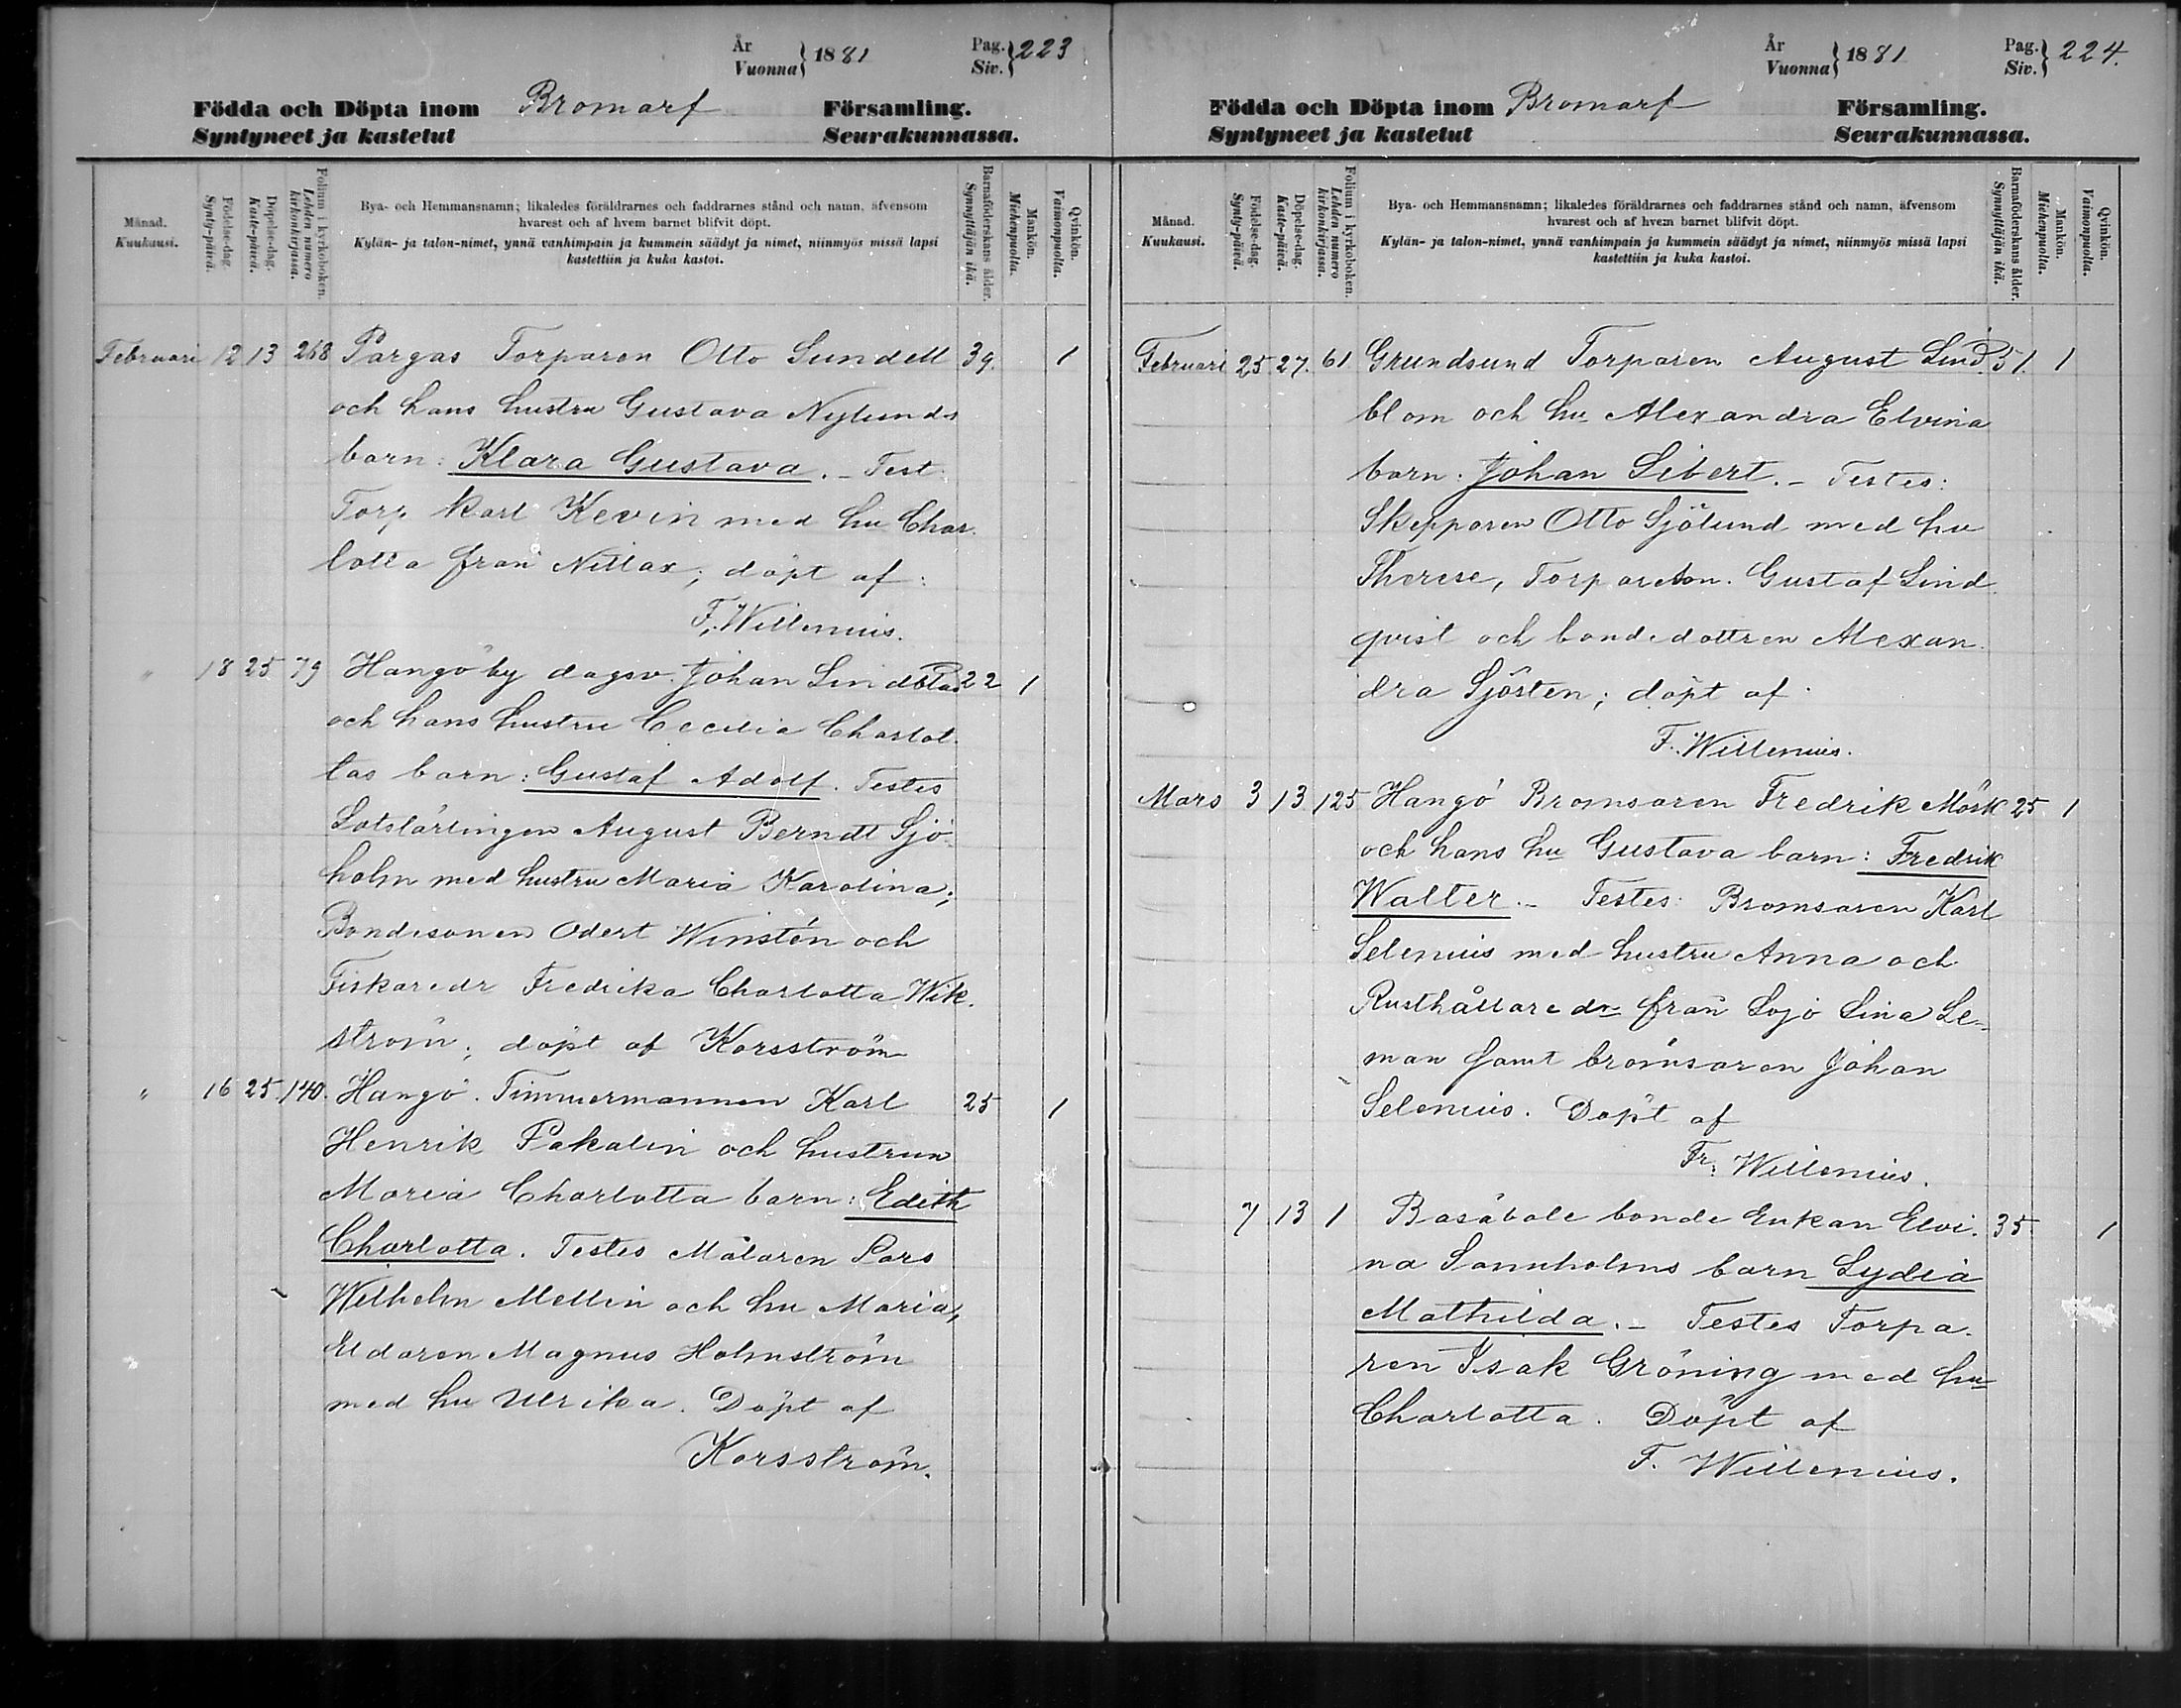 År
Vuonna } 1881
Pag.
Siv. } 223
Födda och Döpta inom Bromarf Församling.
Syntyneet ja kastetut Seurakunnassa.
Månad.
Kuukausi.
Födelse-dag.
Synty-päivä.
Döpelse-dag.
Kaste-päivä.
Folium i kyrkoboken.
Lehden numero kirkonkirjassa.
Bya- och Hemmansnamn; likaledes föräldrarnes och faddrarnes stånd och namn, äfvensom
hvarest och af hvem barnet blifvit döpt.
Kylän- ja talon-nimet, ynnä vanhimpain ja kummein säädyt ja nimet, niinmyös missä lapsi
kastettiin ja kuka kastoi.
Barnaföderskans ålder.
Synnyttäjän ikä.
Mankön.
Miehenpuolta.
Qvinkön.
Vaimonpuolta.
Februari 12 13 268 Pargas Torparen Otto Sundell 39. 1
och hans hustru Gustava Nylunds
barn: Klara Gustava. - Test.
Torp Karl Kevin med hu Char
lotta från Nitlax; döpt af:
F. Willenius.
" 18 25 79 Hangöby dagsv. Johan Lindblad 22 1
och hans hustru Cecilia Charlot
tas barn: Gustaf Adolf. Testes
Lotslärlingen August Berndt Sjö
holm med hustru Maria Karolina;
Bondesonen Odert Winstén och
Fiskaredr Fredrika Charlotta Wik
ström; döpt af Korsström
" 16 25 140. Hangö. Timmermannen Karl 25 1
Henrik Pakalin och hustrun
Maria Charlotta barn: Edith
Charlotta. Testes Målaren Lars
Wilhelm Mellin och hu Maria,
Eldaren Magnus Holmström
med hu Ulrika. Döpt af
Korsström.
År
Vuonna } 1881
Pag.
Siv. } 224.
Födda och Döpta inom Bromarf Församling.
Syntyneet ja kastetut Seurakunnassa.
Månad.
Kuukausi.
Födelse-dag.
Synty-päivä.
Döpelse-dag.
Kaste-päivä.
Folium i kyrkoboken.
Lehden numero kirkonkirjassa.
Bya- och Hemmansnamn; likaledes föräldrarnes och faddrarnes stånd och namn, äfvensom
hvarest och af hvem barnet blifvit döpt.
Kylän- ja talon-nimet, ynnä vanhimpain ja kummein säädyt ja nimet, niinmyös missä lapsi
kastettiin ja kuka kastoi.
Barnaföderskans ålder.
Synnyttäjän ikä.
Mankön.
Miehenpuolta.
Qvinkön.
Vaimonpuolta.
Februari 25 27. 61 Grundsund Torparen August Lind 31. 1
blom och hu Alexandra Elvina
barn: Johan Sibert. - Testes:
Skepparen Otto Sjölund med hu
Therese, Torpareson. Gustaf Lind
qvist och bondedottren Alexan
dra Sjösten; döpt af
F. Willenius.
Mars 3 13 125 Hangö Bromsaren Fredrik Mörk 25 1
och hans hu Gustava barn: Fredrik
Walter. - Testes: Bromsaren Karl
Selenius med hustru Anna och
Rusthållaredr från Lojo Lina Le-
man samt bromsaren Johan
Selenius. Döpt af
Fr. Willenius.
7 13 1 Basåböle bonde Enkan Elvi- 35 1
na Sannholms barn Lydia
Mathilda. - Testes Torpa-
ren Isak Gröning med hu
Charlotta. Döpt af
F. Willenius.